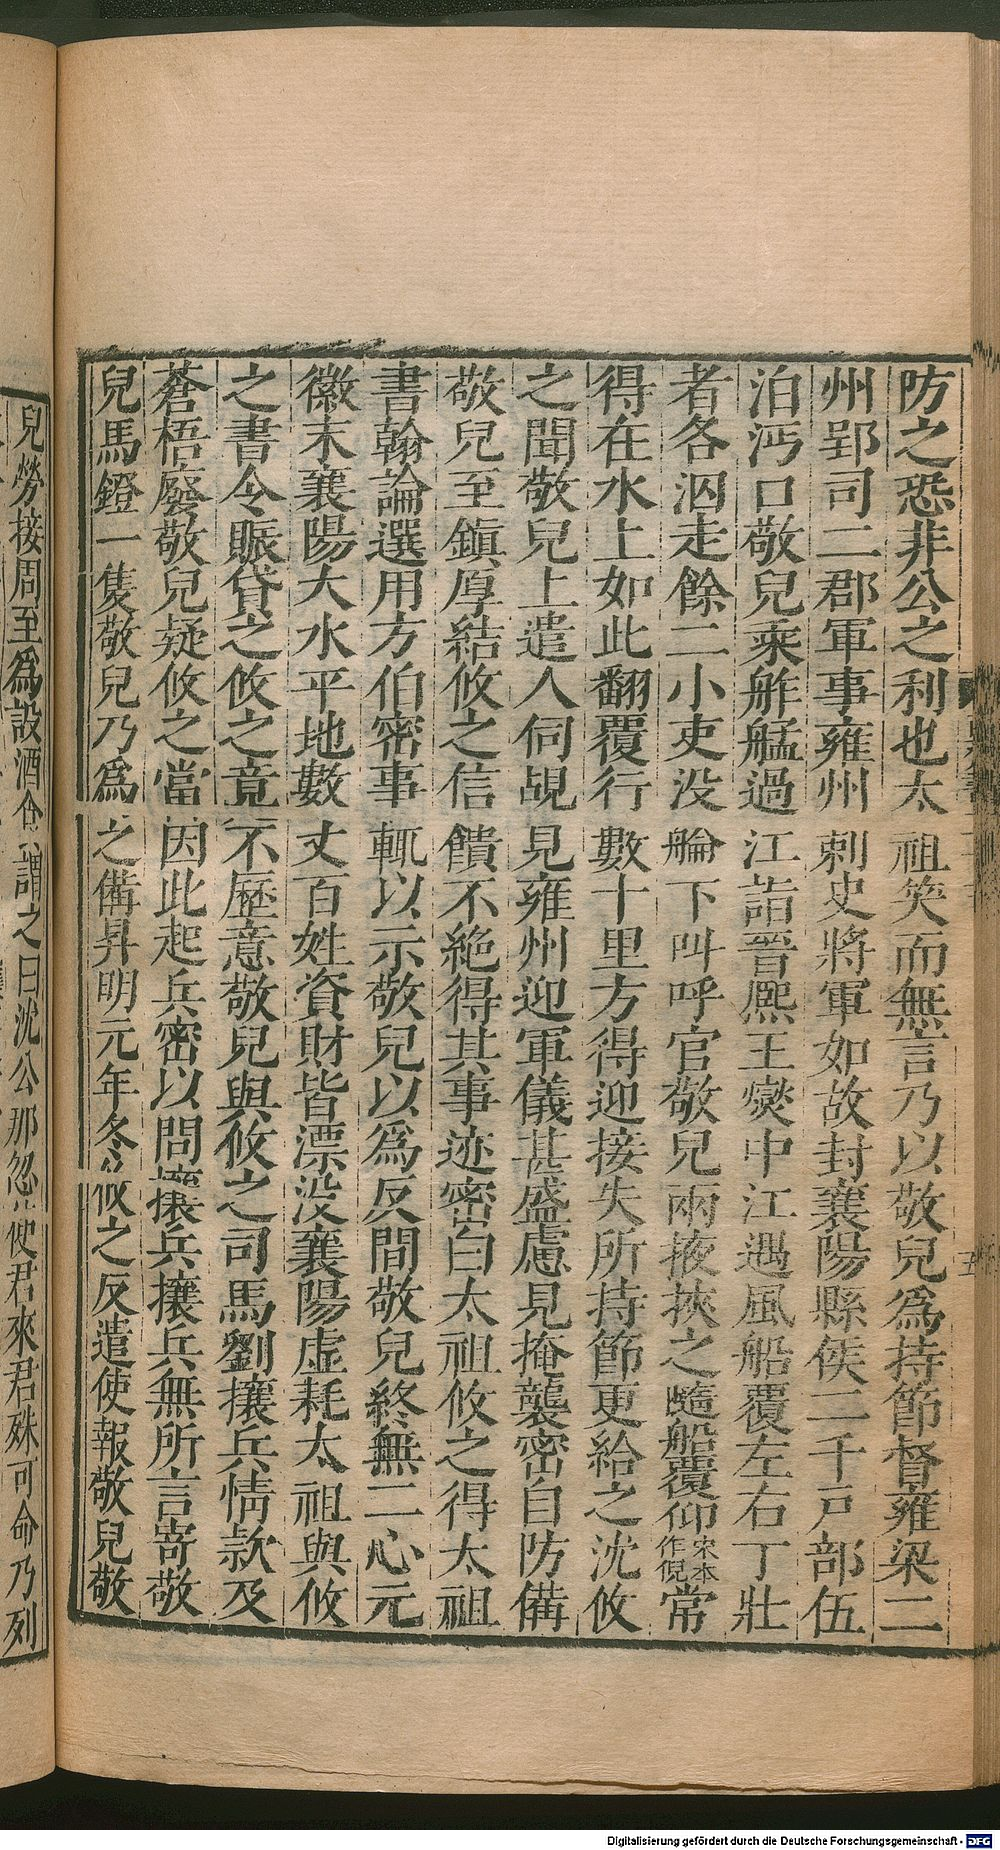 防之恐非公之利也太祖笑而無言乃以敬兒爲持節督雍梁二
州郢司二郡軍事雍州刺史將軍如故封襄陽縣侯二千戸部伍
泊沔口敬兒乘舴艋過江詣晉熙王燮中江遇風船覆左右丁壯
者各泅走餘二小吏没艙下叫呼官敬兒兩掖挾之隨船覆仰宋本作俔常
得在水上如此翻覆行數十里方得迎接失所持節更給之沈攸
之聞敬兒上遣人伺覘見雍州迎軍儀甚盛慮見掩襲密自防備
敬兒至鎮厚結攸之信饋不絶得其事迹密白太祖攸之得太祖
書翰論選用方伯密事輒以示敬兒以爲反間敬兒終無二心元
徽末襄陽大水平地數丈百姓資財皆漂没襄陽虚耗太祖與攸
之書令賑貸之攸之竟不歷意敬兒與攸之司馬劉攘兵情款及
蒼梧廢敬兒疑攸之當因此起兵密以問攘兵攘兵無所言寄敬
兒馬鐙一隻敬兒乃爲之備昇明元年冬攸之反遣使報敬兒敬
兒勞接周至爲設酒食謂之曰沈公那忽使君來君殊可命乃列
Digitalisierung gefördert durch die Deutsche Forschungsgemeinschaft - DFG